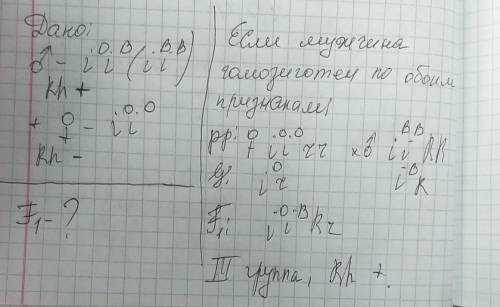 Дано:
♂ - iᴼiᴮ (iᴮiᴮ)
Rh +
♀ - iᴼiᴼ
Rh -
F₁ - ?
Если мужчина
гомозиготен по обоим
признакам
pp: ♀ iᴼiᴼ rr x ♂ iᴮiᴮ RR
g: iᴼ r iᴮ R
F₁: iᴼiᴮ Rr
III группа, Rh +.